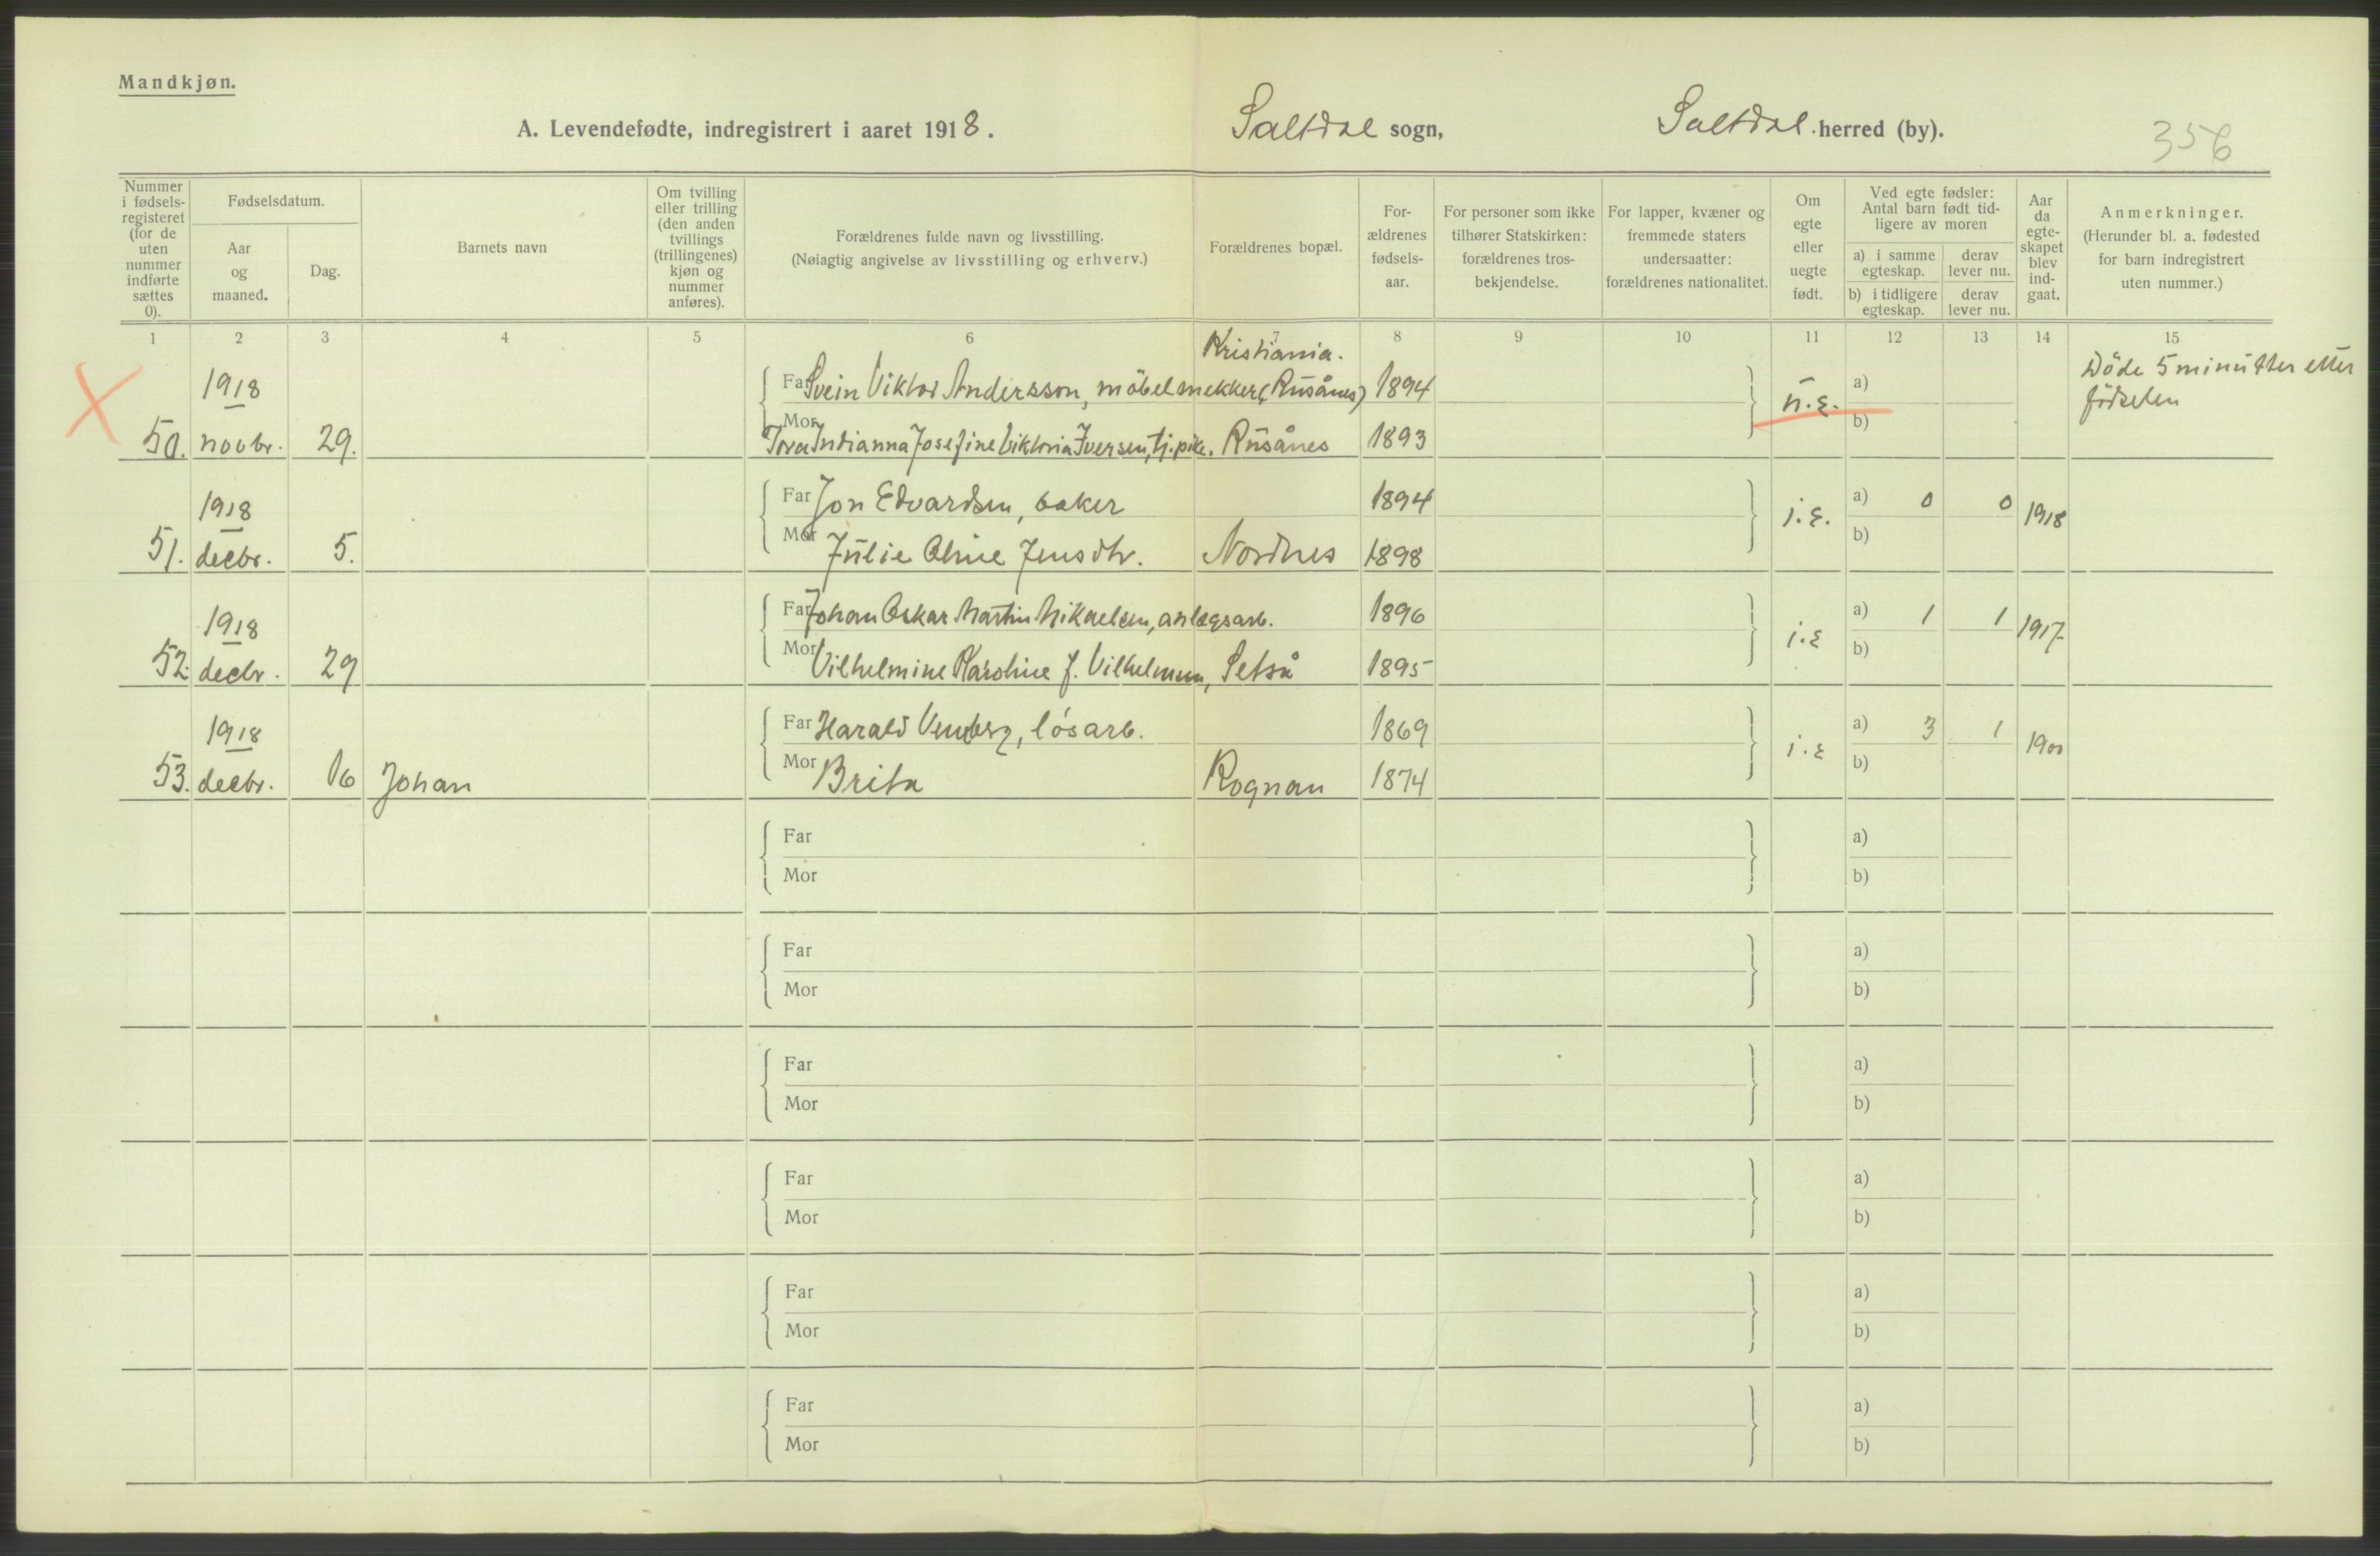 Mandkjøn.
A. Levendefødte, indregistrert i aaret 1918. Saltdal sogn, Saltdal herred (by). 356
Nummer i fødsels-registeret (for de uten nummer indførte sættes 0).
Fødselsdatum.
Aar og maaned.
Dag.
Barnets navn
Om tvilling eller trilling (den anden tvillings (trillingenes) kjøn og nummer anføres).
Forældrenes fulde navn og livsstilling.
(Nøiagtig angivelse av livsstilling og erhverv.)
Forældrenes bopæl.
For-ældrenes fødsels-aar.
For personer som ikke tilhører Statskirken: forældrenes tros-bekjendelse.
For lapper, kvæner og fremmede staters undersaatter: forældrenes nationalitet.
Om egte eller uegte født.
Ved egte fødsler: Antal barn født tid-ligere av moren
a) i samme egteskap.
derav lever nu.
b) i tidligere egteskap.
derav lever nu.
Aar da egte-skapet blev ind-gaat.
Anmerkninger.
(Herunder bl. a. fødested for barn indregistrert uten nummer.)
1 2 3 4 5 6 7 8 9 10 11 12 13 14 15
Kristiania.
1918 Far Svein Viktor Andersson, möbelsnekker (Rusånes) 1894 u.e. a) Döde 5 minutter etter
födselen
50. novbr. 29. Mor Tora Indianna Josefine Viktoria Iversen, tj.pike. Rusånes 1893 b)
1918 Far Jon Edvardsen, baker 1894 i.e. a) 0 0 1918
51. decbr. 5. Mor Julie Oline Jensdtr. Nordnes 1898 b)
1918 Far Johan Oskar Martin Mikaelsen, anlegsarb. 1896 i.e a) 1 1 1917
52. decbr. 29 Mor Vilhelmine Karoline f. Vilhelmsen, Setså 1895 b)
1918 Far Harald, lösarb. 1869 i.e a) 3 1 1900
53. decbr. 16 Johan Mor Brita Rognan 1874 b)
Far a)
Mor b)
Far a)
Mor b)
Far a)
Mor b)
Far a)
Mor b)
Far a)
Mor b)
Far a)
Mor b)